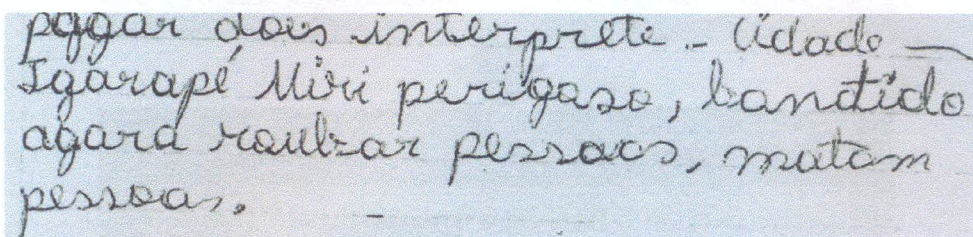 pagar dois interprete - Cidade
Igarapé Miri perigoso, bandido
agara roubar pessoas, matam
pessoas.